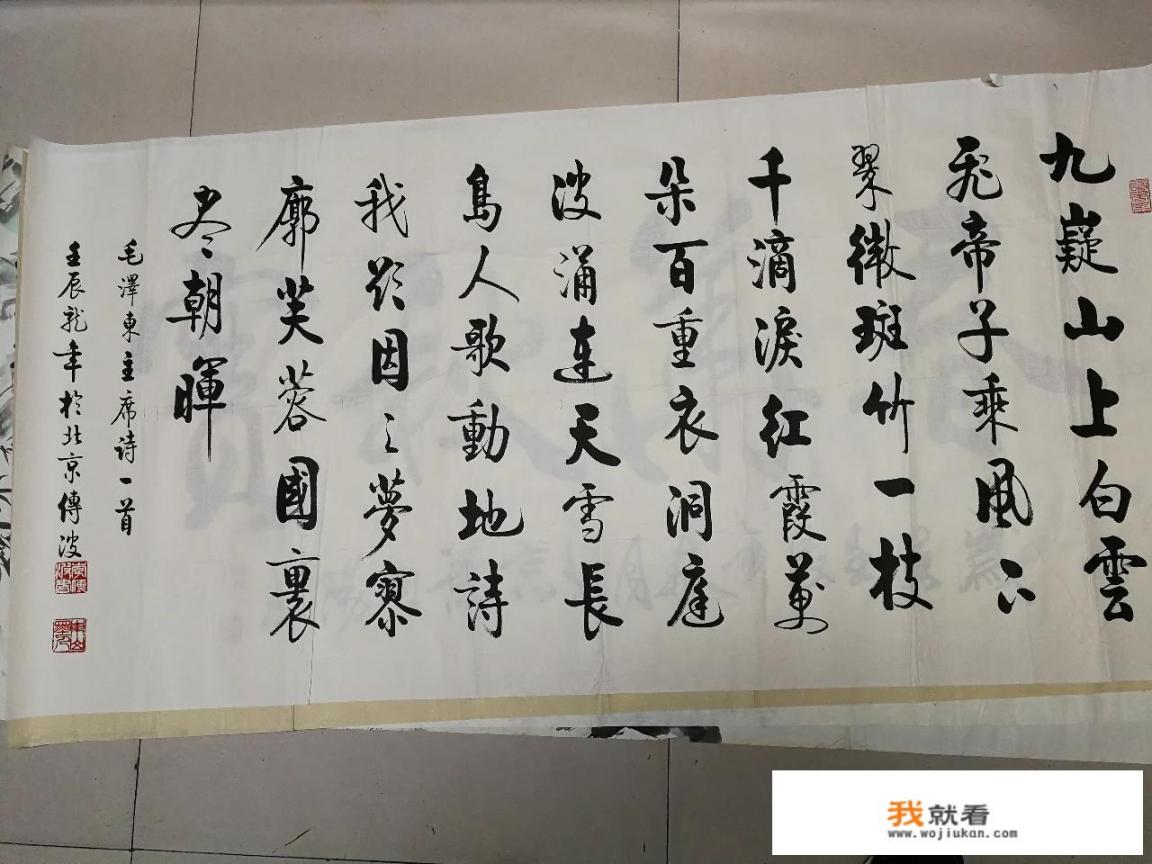 九嶷山上白雲
飛帝子乘風下
翠微斑竹一枝
千滴淚紅霞萬
朵百重衣洞庭
波涌連天雪長
島人歌動地詩
我欲因之夢寥
廓芙蓉國裏
尽朝暉
毛澤東主席詩一首
壬辰龍年於北京傅波
我就看
www.wojiukan.com